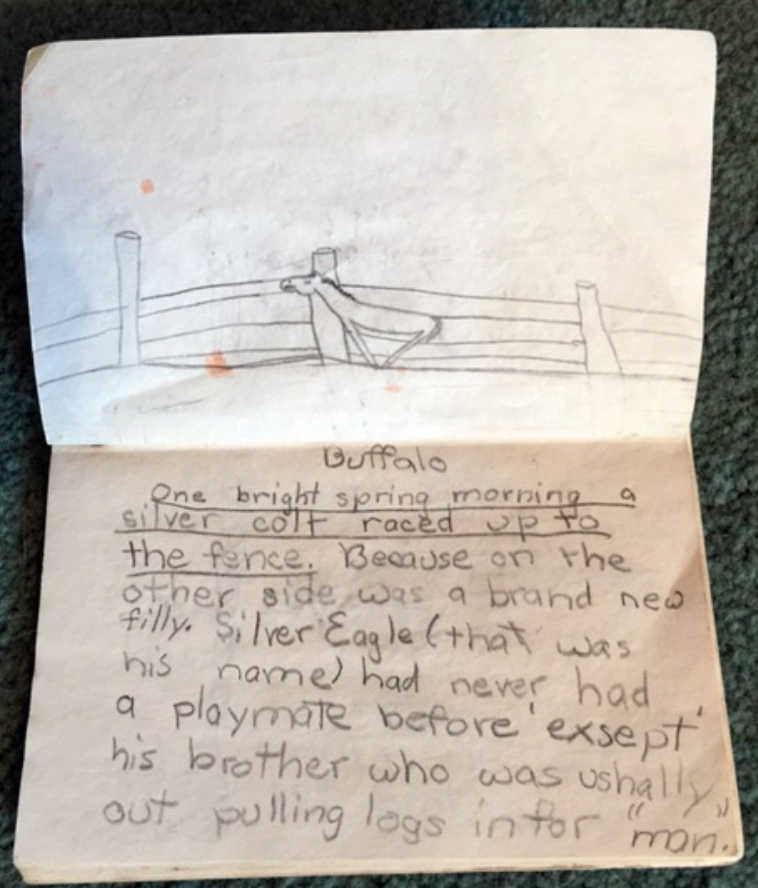 Buffalo
One bright spring morning a
silver colt raced up to
the fence. Because on the
other side was a brand new
filly. Silver Eagle (that was
his name) had never had
a playmate before 'exsept'
his brother who was ushally
out pulling logs in for "man."